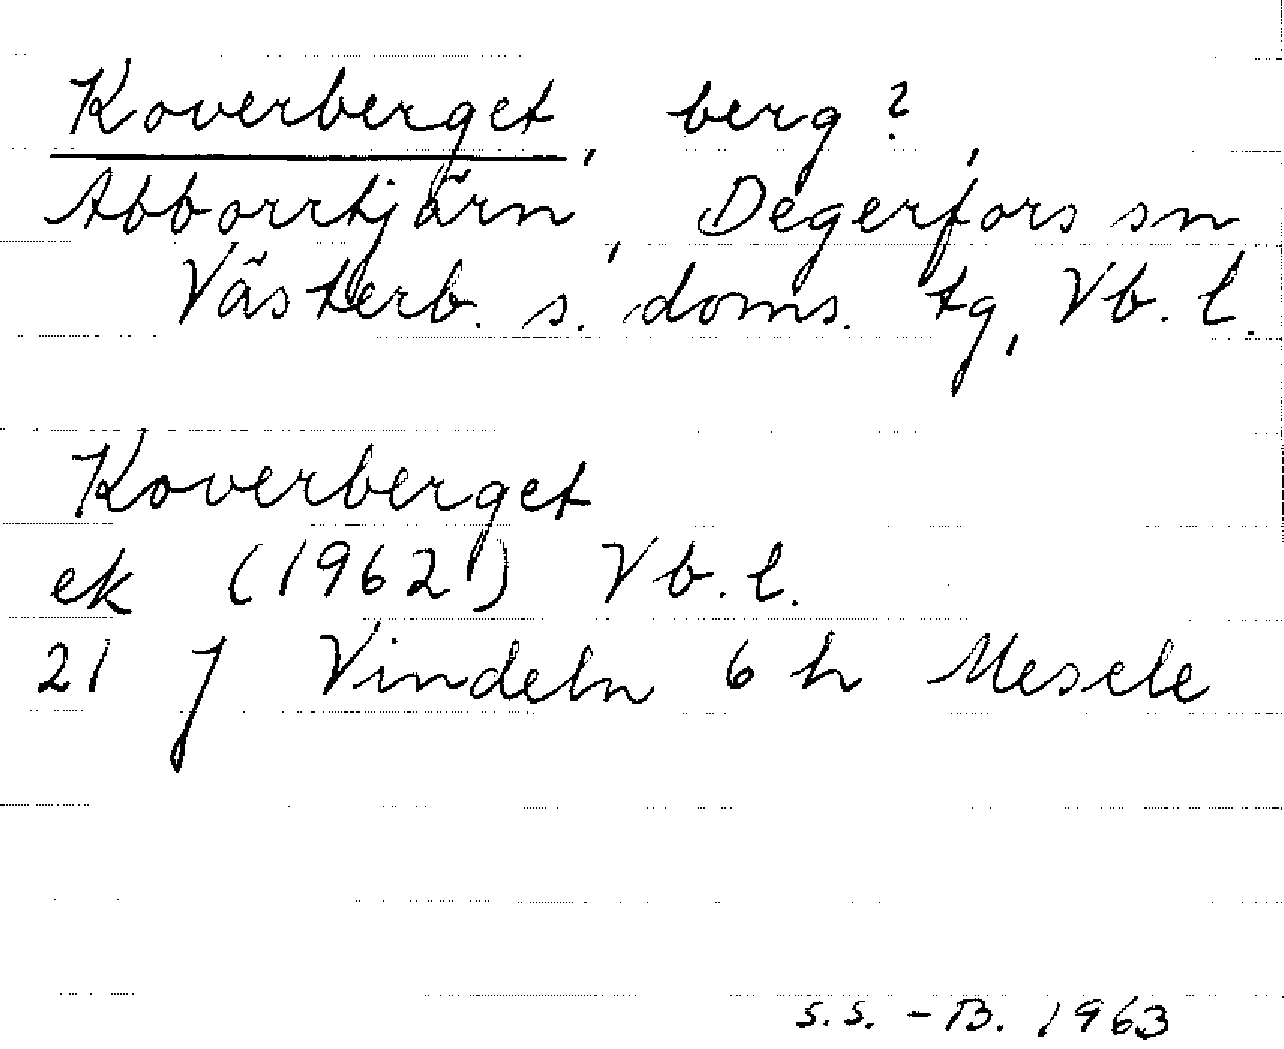 Koverberget, berg?,
Abborrtjärn, Degerfors sn
Västerb. s. doms. tg, Vb. l.
Koverberget
ek (1962) Vb. l.
21 J Vindeln 6 h Mesele
s.s. - B. 1963